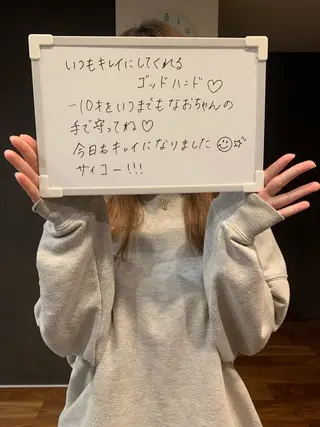 いつもキレイにしてくれる
ゴッドハンド♡
-10才をいつまでもなおちゃんの
手で守ってね♡
今日もキレイになりました☺☆
サイコー!!!